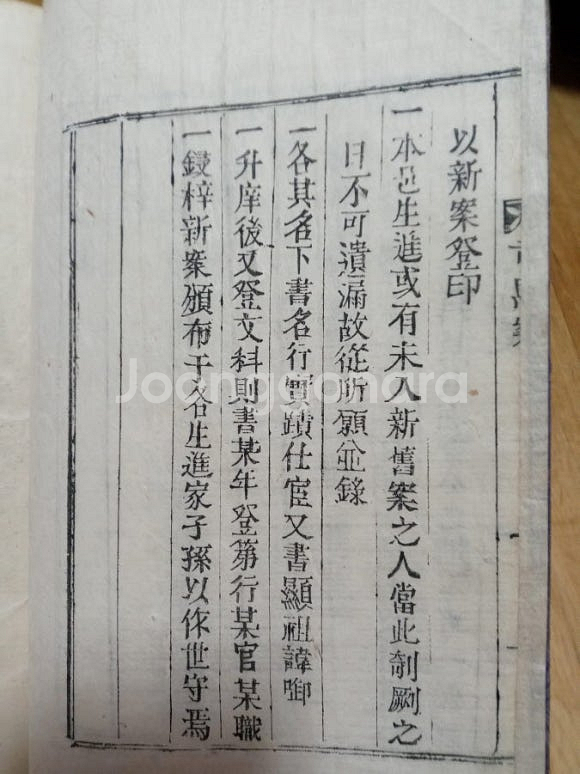 以新案登印
一本邑生進或有未入新舊案之人當此剞劂之
日不可遺漏故從所願並錄
一各其名下書名行實蹟仕宦又書顯祖諱啣
一升庠後又登文科則書某年登第行某官某職
一鋟梓新案頒布于各生進家子孫以作世守焉
Joonggonara